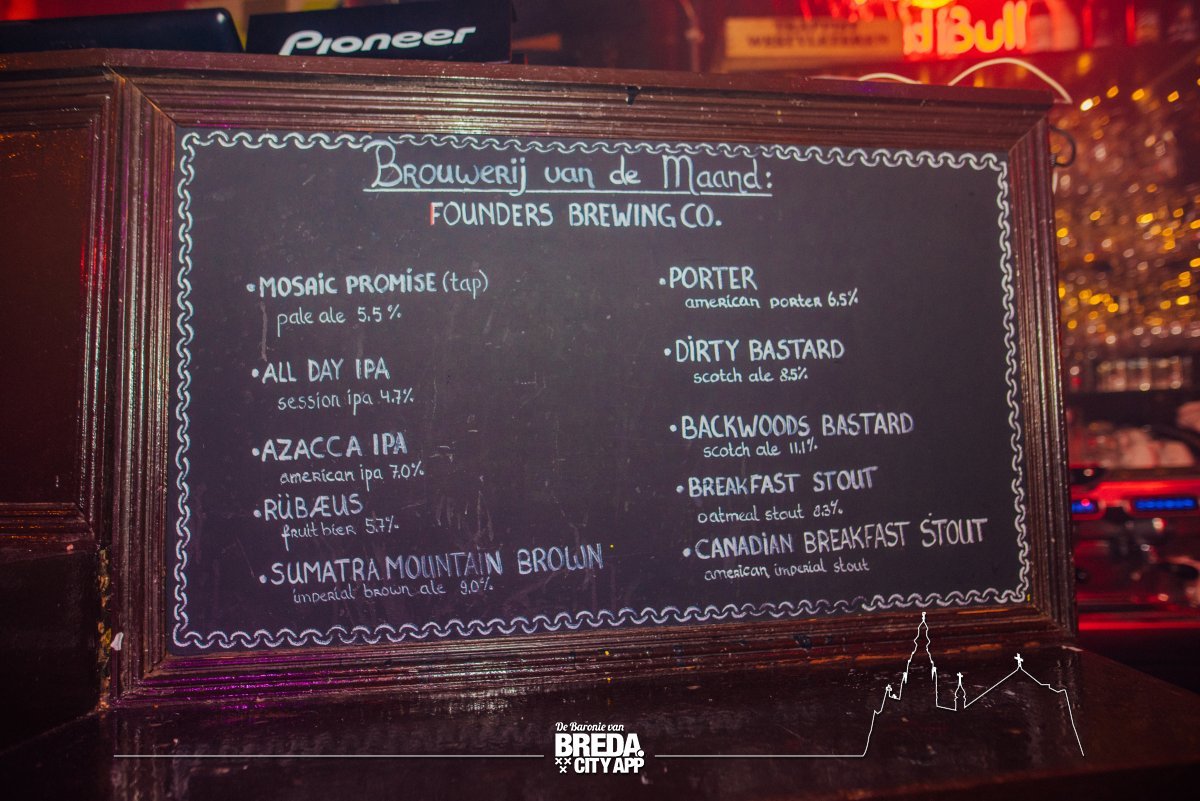 Pioneer
Red Bull
Brouwerij van de Maand:
FOUNDERS BREWING CO.
• MOSAIC PROMISE (tap)
pale ale 5.5%
• ALL DAY IPA
session ipa 4.7%
• AZACCA IPA
american ipa 7.0%
• RÜBÆUS
fruit bier 5.7%
• SUMATRA MOUNTAIN BROWN
imperial brown ale 9.0%
• PORTER
american porter 6.5%
• DIRTY BASTARD
scotch ale 8.5%
• BACKWOODS BASTARD
scotch ale 11.1%
• BREAKFAST STOUT
oatmeal stout 8.3%
• CANADIAN BREAKFAST STOUT
american imperial stout
De Baronie van
BREDA.
CITY APP